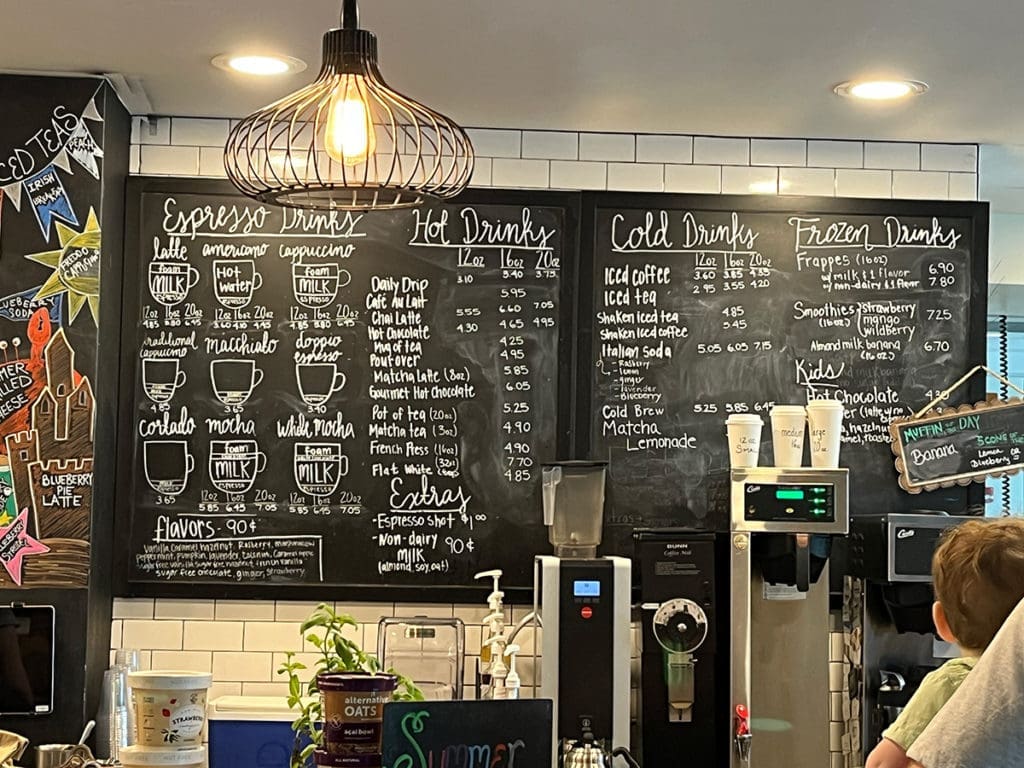 ICED TEAS
PEACH
IRISH
BREAKFAST
BLUEBERRY
SODA
BLUEBERRY
PIE
LATTE
Espresso Drinks
latte americano cappuccino
foam
MILK
espresso
Hot
water
foam
MILK
espresso
12oz 16oz 20oz
4.85 5.80 6.45
12oz 16oz 20oz
3.60 4.10 4.45
12oz 16oz 20oz
4.85 5.80 6.45
traditional
cappuccino
macchiato
doppio
espresso
4.85
3.65
3.40
cortado mocha white mocha
foam
MILK
espresso
foam
MILK
espresso
3.65
12oz 16oz 20oz
5.85 6.45 7.05
12oz 16oz 20oz
5.85 6.45 7.05
flavors - 90¢
Vanilla Caramel hazelnut, Rasberry,
peppermint, pumpkin, lavender,
sugar free chocolate, ginger, strawberry
Hot Drinks
12oz 16oz 20oz
Daily Drip 3.10 3.40 3.75
Café Au lait 5.95
Chai Latte 5.55 6.60 7.05
Hot Chocolate 4.30 4.65 4.95
Mug of tea 4.25
Pour over 4.95
Matcha Latte (8oz) 5.85
Gourmet Hot Chocolate 6.05
Pot of tea (20oz) 5.25
Matcha tea (3oz) 4.90
French Press (16oz) 4.90
(32oz) 7.70
Flat White (8oz) 4.85
Extras
- Espresso shot $1.00
- Non-dairy
milk 90¢
(almond, soy, oat)
Cold Drinks
12oz 16oz 20oz
Iced coffee 3.60 3.85 4.35
Iced tea 2.95 3.55 4.20
Shaken iced tea 4.85
Shaken iced coffee 5.45
Italian Soda 5.05 6.05 7.15
- Rasberry
- lemon
- ginger
- lavender
- Blueberry
Cold Brew 5.25 5.85 6.45
Matcha
Lemonade
Frozen Drinks
Frappes (16oz)
w/ milk & 1 flavor 6.90
w/ non-dairy & 1 flavor 7.80
Smoothies
(16oz)
strawberry
mango
wildberry
7.25
Almond milk banana 6.70
(16oz)
Kids
Hot Chocolate
MUFFIN OF THE DAY
Banana
SCONE OF THE
Lemon or
Blueberry
12oz
small
medium
large
Curtis
Curtis
BUNN
Coffee Mill
STRAWBERRY
alternative
OATS
acai bowl
ALL NATURAL
Summer